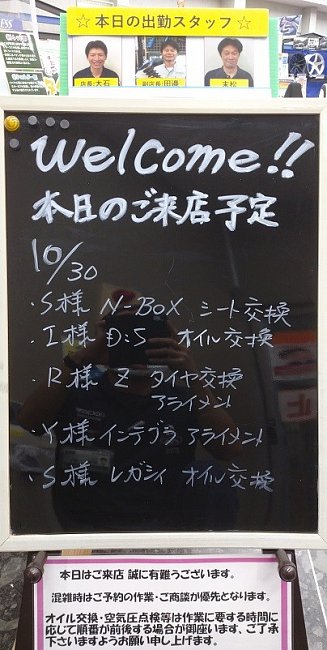 ☆本日の出勤スタッフ☆
店長:大石
副店長:田邉
末松
Welcome!!
本日のご来店予定
10/30
・S様 N-BOX シート交換
・I様 D:5 オイル交換
・R様 Z タイヤ交換
アライメント
・Y様 インテグラ アライメント
・S様 レガシィ オイル交換
本日はご来店 誠に有難うございます。
混雑時はご予約の作業・ご商談が優先となります。
オイル交換・空気圧点検等は作業に要する時間に
応じて順番が前後する場合が御座います、ご了承
下さいますようお願い申し上げます。